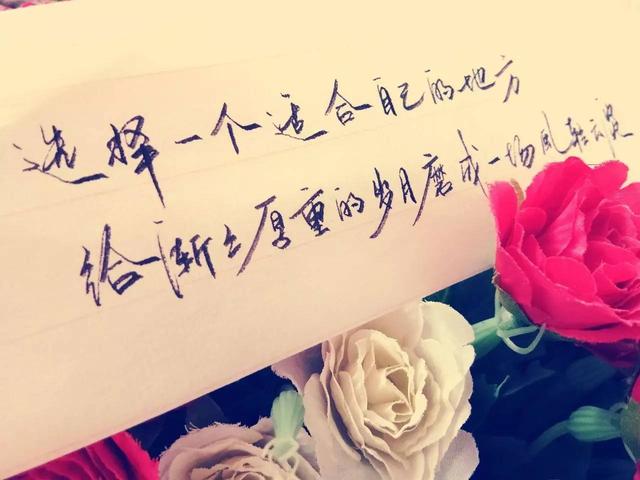 选择一个适合自己的地方
给渐渐厚重的岁月磨成一场风轻云淡